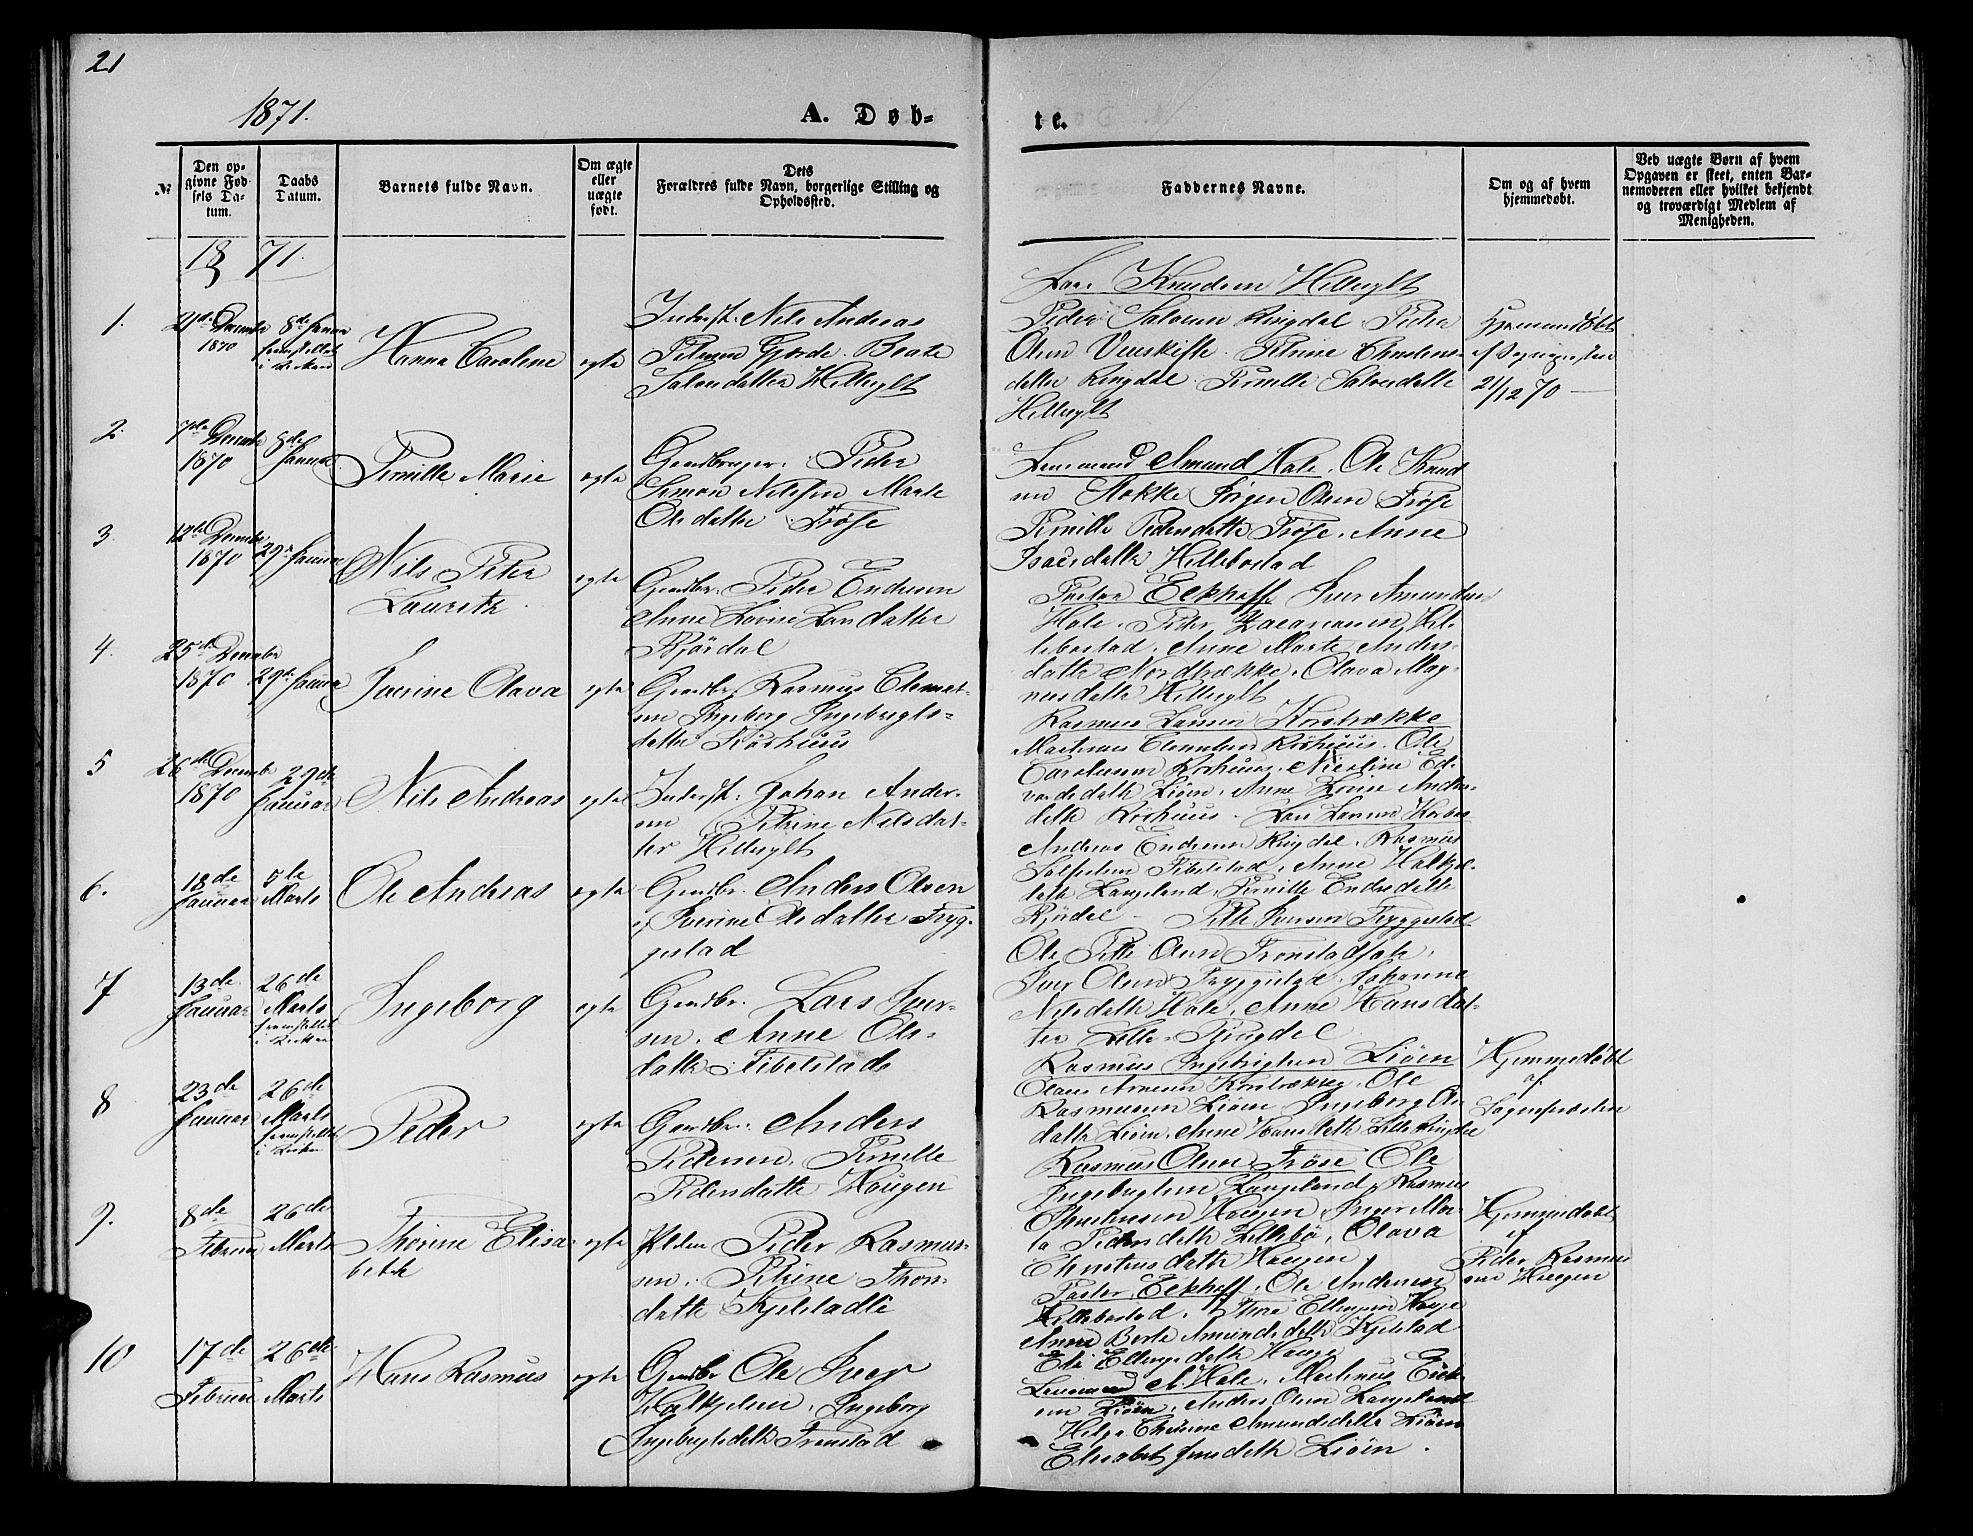 21
1871.
A. Døb-
te.
№
Den op-
givne Fød-
sels Da-
tum.
Daabs
Datum.
Barnets fulde Navn.
Om ægte
eller
uægte
født.
Dets
Forældres fulde Navn, borgerlige Stilling og
Opholdssted.
Faddernes Navne.
Om og af hvem
hjemmedøbt.
Ved uægte Børn af hvem
Opgaven er skeet, enten Bar-
nemoderen eller hvilket bekjendt
og troværdigt Medlem af
Menigheden.
1871.
1.
1870
8de Januar
fremstillet
i Kirken
Hanna Caroline
egte
Inderst. Nils Andreas
Petersen Gjerde. Beate
Salomdatter Hellesylt
Lars Knudsen Hellesylt
Peder Salomsen Ringdal
Olsen
Petrine
datter Ringdal. Pernille
Hellesylt
Hjemmedøbt
af Sognepresten
21/12 70
2.
7de Decembr
1870
8de
Januar
Pernille Marie
egte
Gaardbruger Peder
Simon Nilssen Marte
Olsdatter Frøse
Lensmand Amund Hole. Ole Knud
sen Stokke Jørgen Olsen Frøse
Pernille Pedersdatter Frøse. Anne
datter Hellebostad
3.
12te Decembr
1870
29de Januar
Nils Peter
Lauritz
egte
Gaardbr. Peder Endresen
Anne Lovise Larsdatter
Bjørdal
Pastor Eckhoff Iver Amundsen
Hole. Peter Zacariasen Hel
lebostad. Anne Marte Anders
datter Nordbrække. Olava Mag-
nusdatter Hellesylt
4.
25de Decembr
1870
29de Januar
Iverine Olava
egte
Gaardbr. Rasmus Clemet-
sen Ingeborg Ingebrigts-
datter Røshuus
Rasmus Larsen Korsbrække
Røshuus. Ole
Røshuus. Nicoline Ed-
vardsdatter Liøen. Anne Lovise
datter Røshuus
5
26de Decembr
1870
29de
Januar
Nils Andreas
egte
Inderst: Johan Anders-
sen Petrine Nilsdat-
ter Hellesylt
Lars Larsen
Andreas Endresen Ringdal. Rasmus
Tibelstad. Anne
datter Langeland. Pernille Endresdatter
6.
18de
Januar
5te
Marts
Ole Andreas
egte
Gaardbr. Anders Olsen
og Iverine Olsdatter Tryg-
gestad
Petter Iversen Tryggestad
Ole Petter Olsen
Iver Olsen Tryggestad. Johanne
Nilsdatter Hole. Anne Hansdat-
ter Lille-Ringdal
7
13de
Januar
26de
Marts
fremstillet
i Kirken
Ingeborg
egte
Gaardbr. Lars Iver-
sen. Anne Ols-
datter Tibelstad
Rasmus Ingebrigtsen Liøen
Olaus Arnesen Korsbrække. Ole
Rasmussen Liøen Ingeborg Ols
datter Liøen. Anne Hansdatter Lilleringdal
Hjemmedøbt
af
Sognepresten
8
23de
Januar
26de
Marts
fremstillet
i Kirken
Peder
egte
Gaardbr. Anders
Pedersen. Pernille
Pedersdatter Haugen
Rasmus Olsen Frøse Ole
Ingebrigtsen Langeland. Rasmus
Christensen Haugen. Inger Mar-
ta Pedersdatter Lillebø. Olava
Christensdatter Haugen
Hjemmedøbt
af
Peder Rasmus
sen Haugen
9.
8de
Februar
26de
Marts
Thorine Elisa-
beth
egte
Peder Rasmus-
sen. Petrine Thom-
datter Kjelstadli
Pastor Eckhoff. Ole Andersen
Hellebostad. Ellingsen Hauge
Anne Berte Amundsdatter Kjelstad
Eli Ellingsdatter Hauge
10
17de
Februar
26de
Marts
Hans Rasmus
egte
Gaardbr Ole Iver
Halkjelsen. Ingeborg
Ingebrigtsdatter Tronstad
Lensmand A. Hole. Martinus Erik
sen Liøen. Anders Olsen Langeland
Helga Christine Amundsdatter Liøen
Elisabet Jensdatter Liøen.